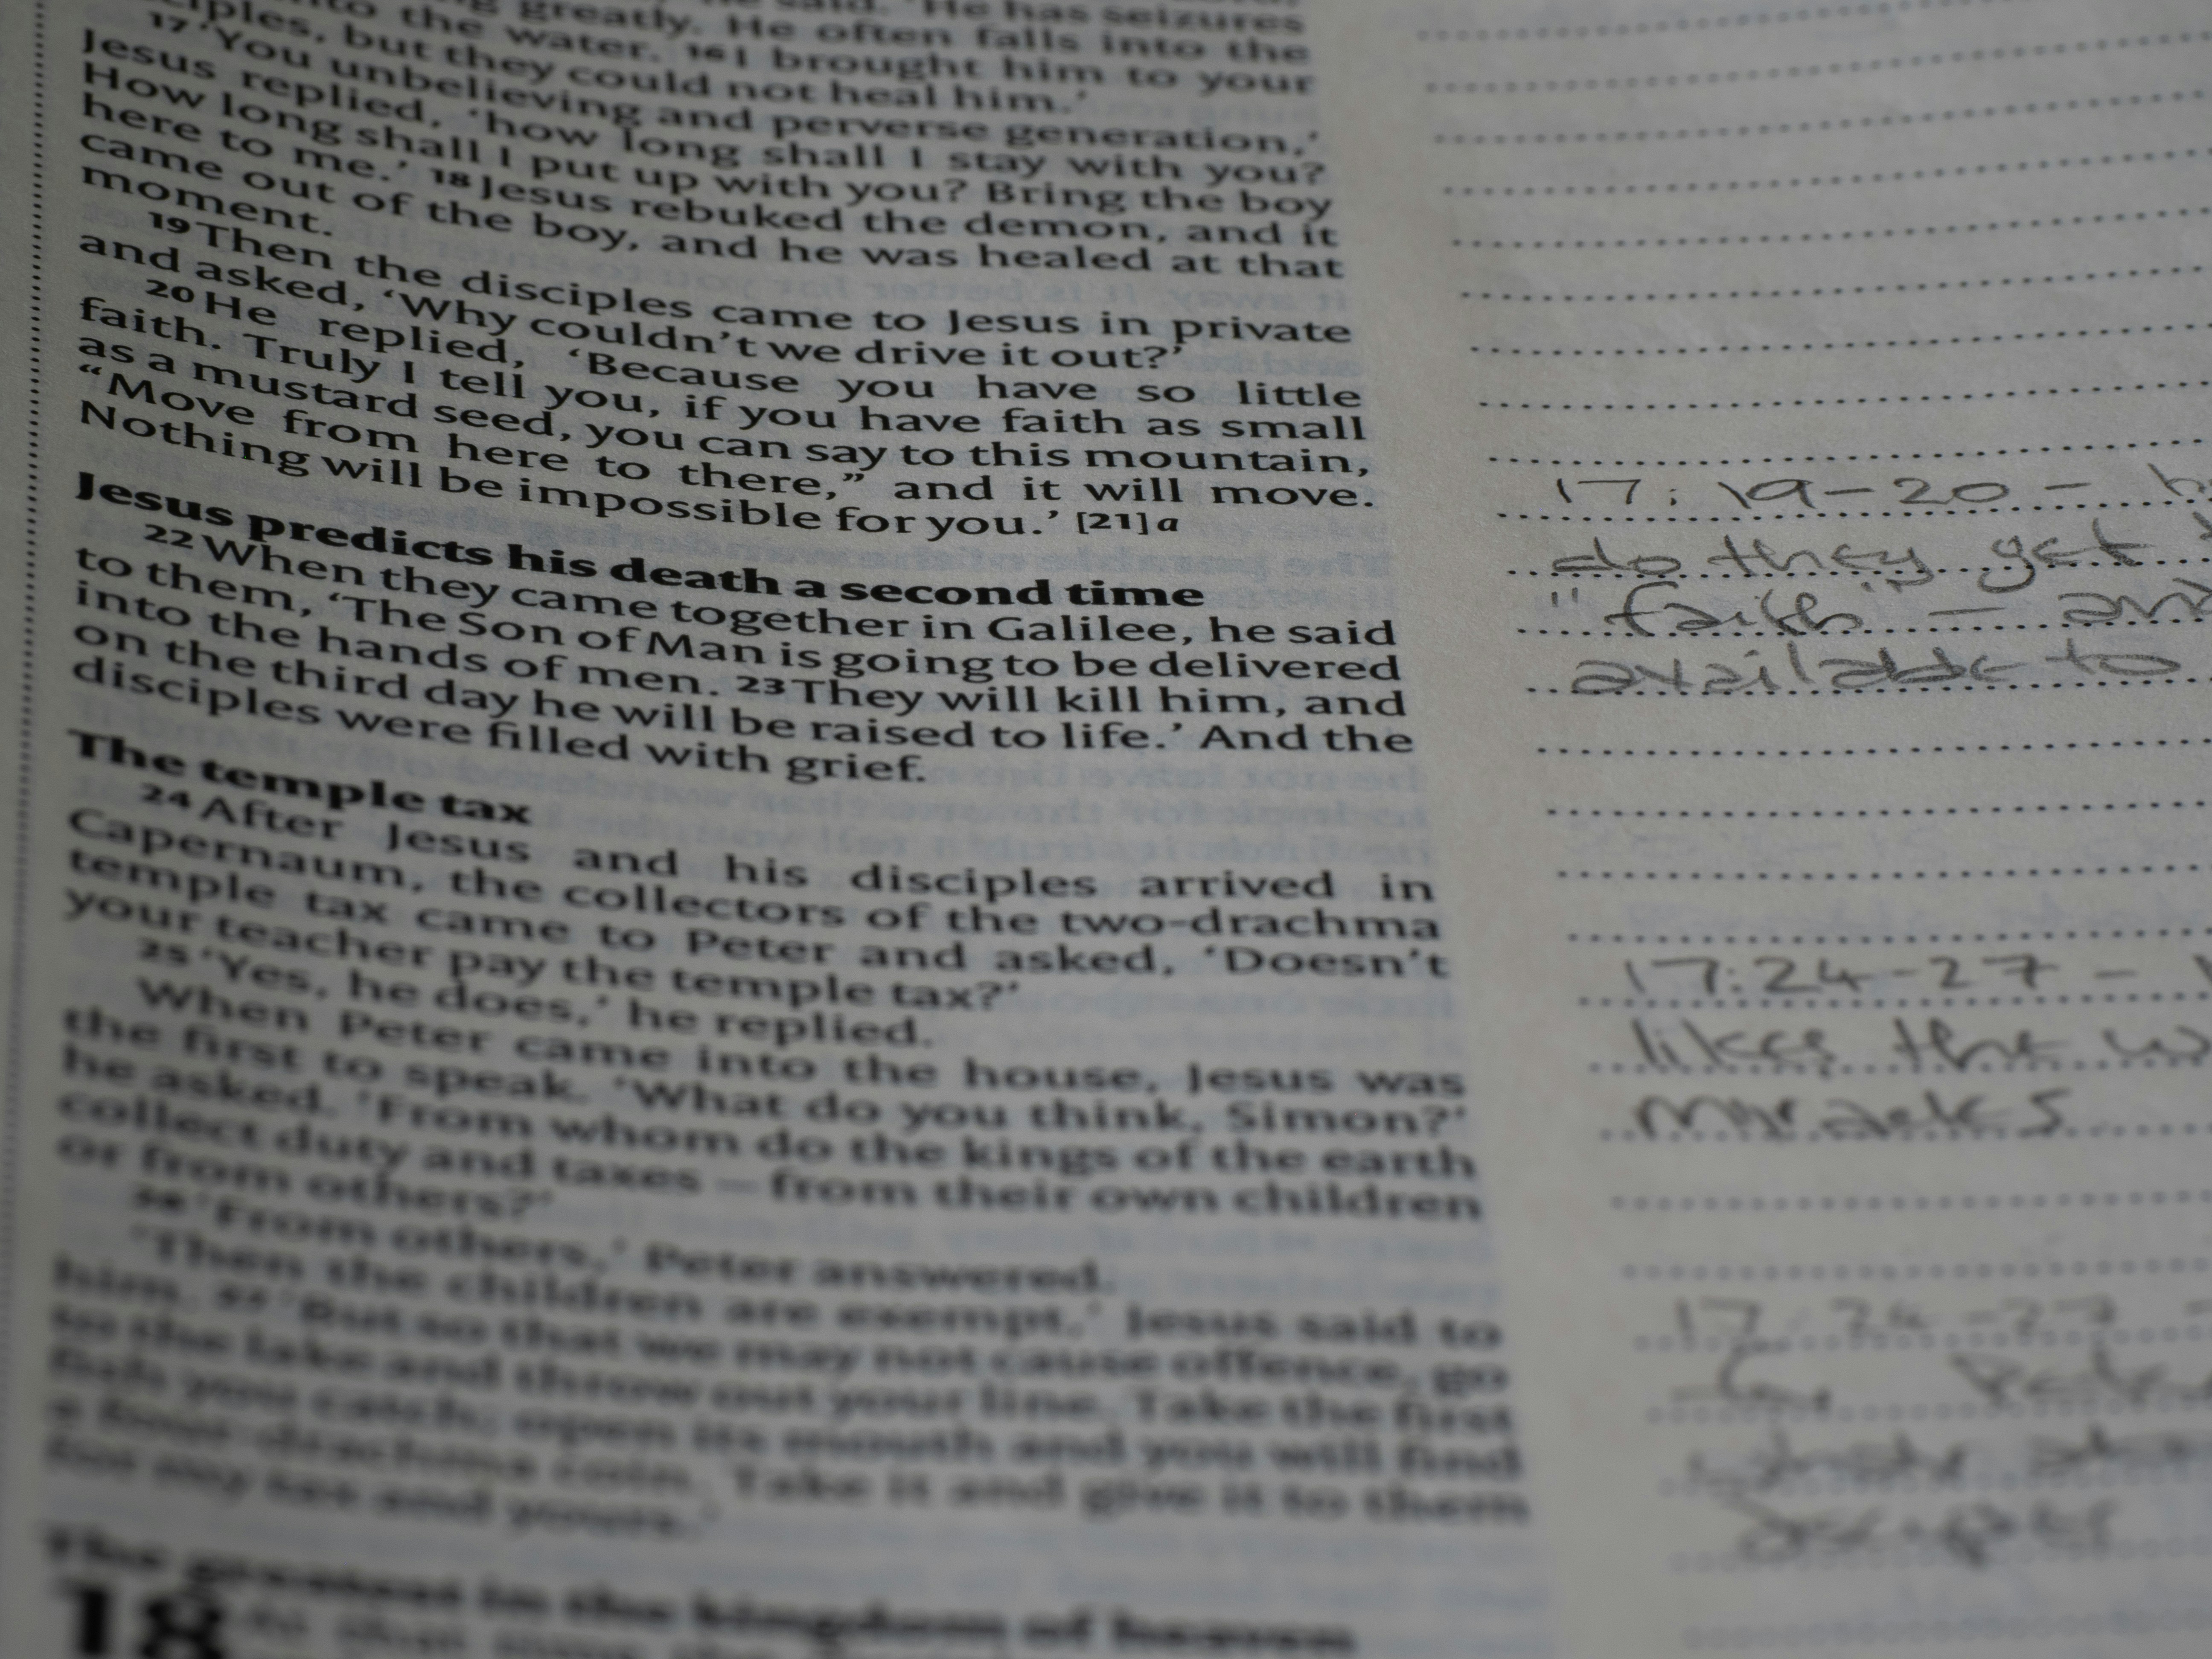 greatly. He often falls into the
the water. 16 I brought him to your
but they could not heal him.'
17 'You unbelieving and perverse generation,'
Jesus replied, 'how long shall I stay with you?
How long shall I put up with you? Bring the boy
here to me.' 18 Jesus rebuked the demon, and it
came out of the boy, and he was healed at that
moment.
19 Then the disciples came to Jesus in private
and asked, 'Why couldn't we drive it out?'
20 He replied, 'Because you have so little
faith. Truly I tell you, if you have faith as small
as a mustard seed, you can say to this mountain,
“Move from here to there,” and it will move.
Nothing will be impossible for you.' [21] a
Jesus predicts his death a second time
22 When they came together in Galilee, he said
to them, 'The Son of Man is going to be delivered
into the hands of men. 23 They will kill him, and
on the third day he will be raised to life.' And the
disciples were filled with grief.
The temple tax
24 After Jesus and his disciples arrived in
Capernaum, the collectors of the two-drachma
temple tax came to Peter and asked, 'Doesn't
your teacher pay the temple tax?'
25 'Yes, he does,' he replied.
When Peter came into the house, Jesus was
the first to speak. 'What do you think, Simon?'
he asked. 'From whom do the kings of the earth
collect duty and taxes – from their own children
or from others?'
26 'From others,' Peter answered.
'Then the children are exempt,' Jesus said to
him. 27 'But so that we may not cause offence, go
to the lake and throw out your line. Take the first
fish you catch; open its mouth and you will find
a four-drachma coin. Take it and give it to them
for my tax and yours.'
The greatest in the kingdom of heaven
18
17:19-20 -
do they get
"faith" - and
available to
17:24-27 -
likes the
miracles
17:24-27 -